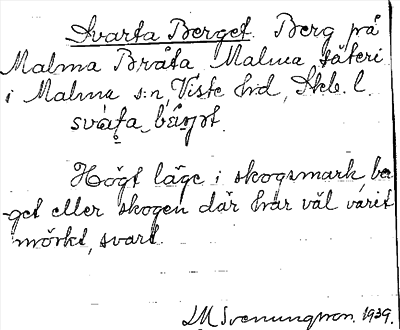 Svarta Berget. Berg på
Malma Bråta Malma säteri
i Malma s:n, Viste hrd, Skb. l.
svàṭa bǽrjət.
Högt läge i skogsmark, ber-
get eller skogen där har väl varit
mörkt, svart.
LM Svenungsson. 1939.